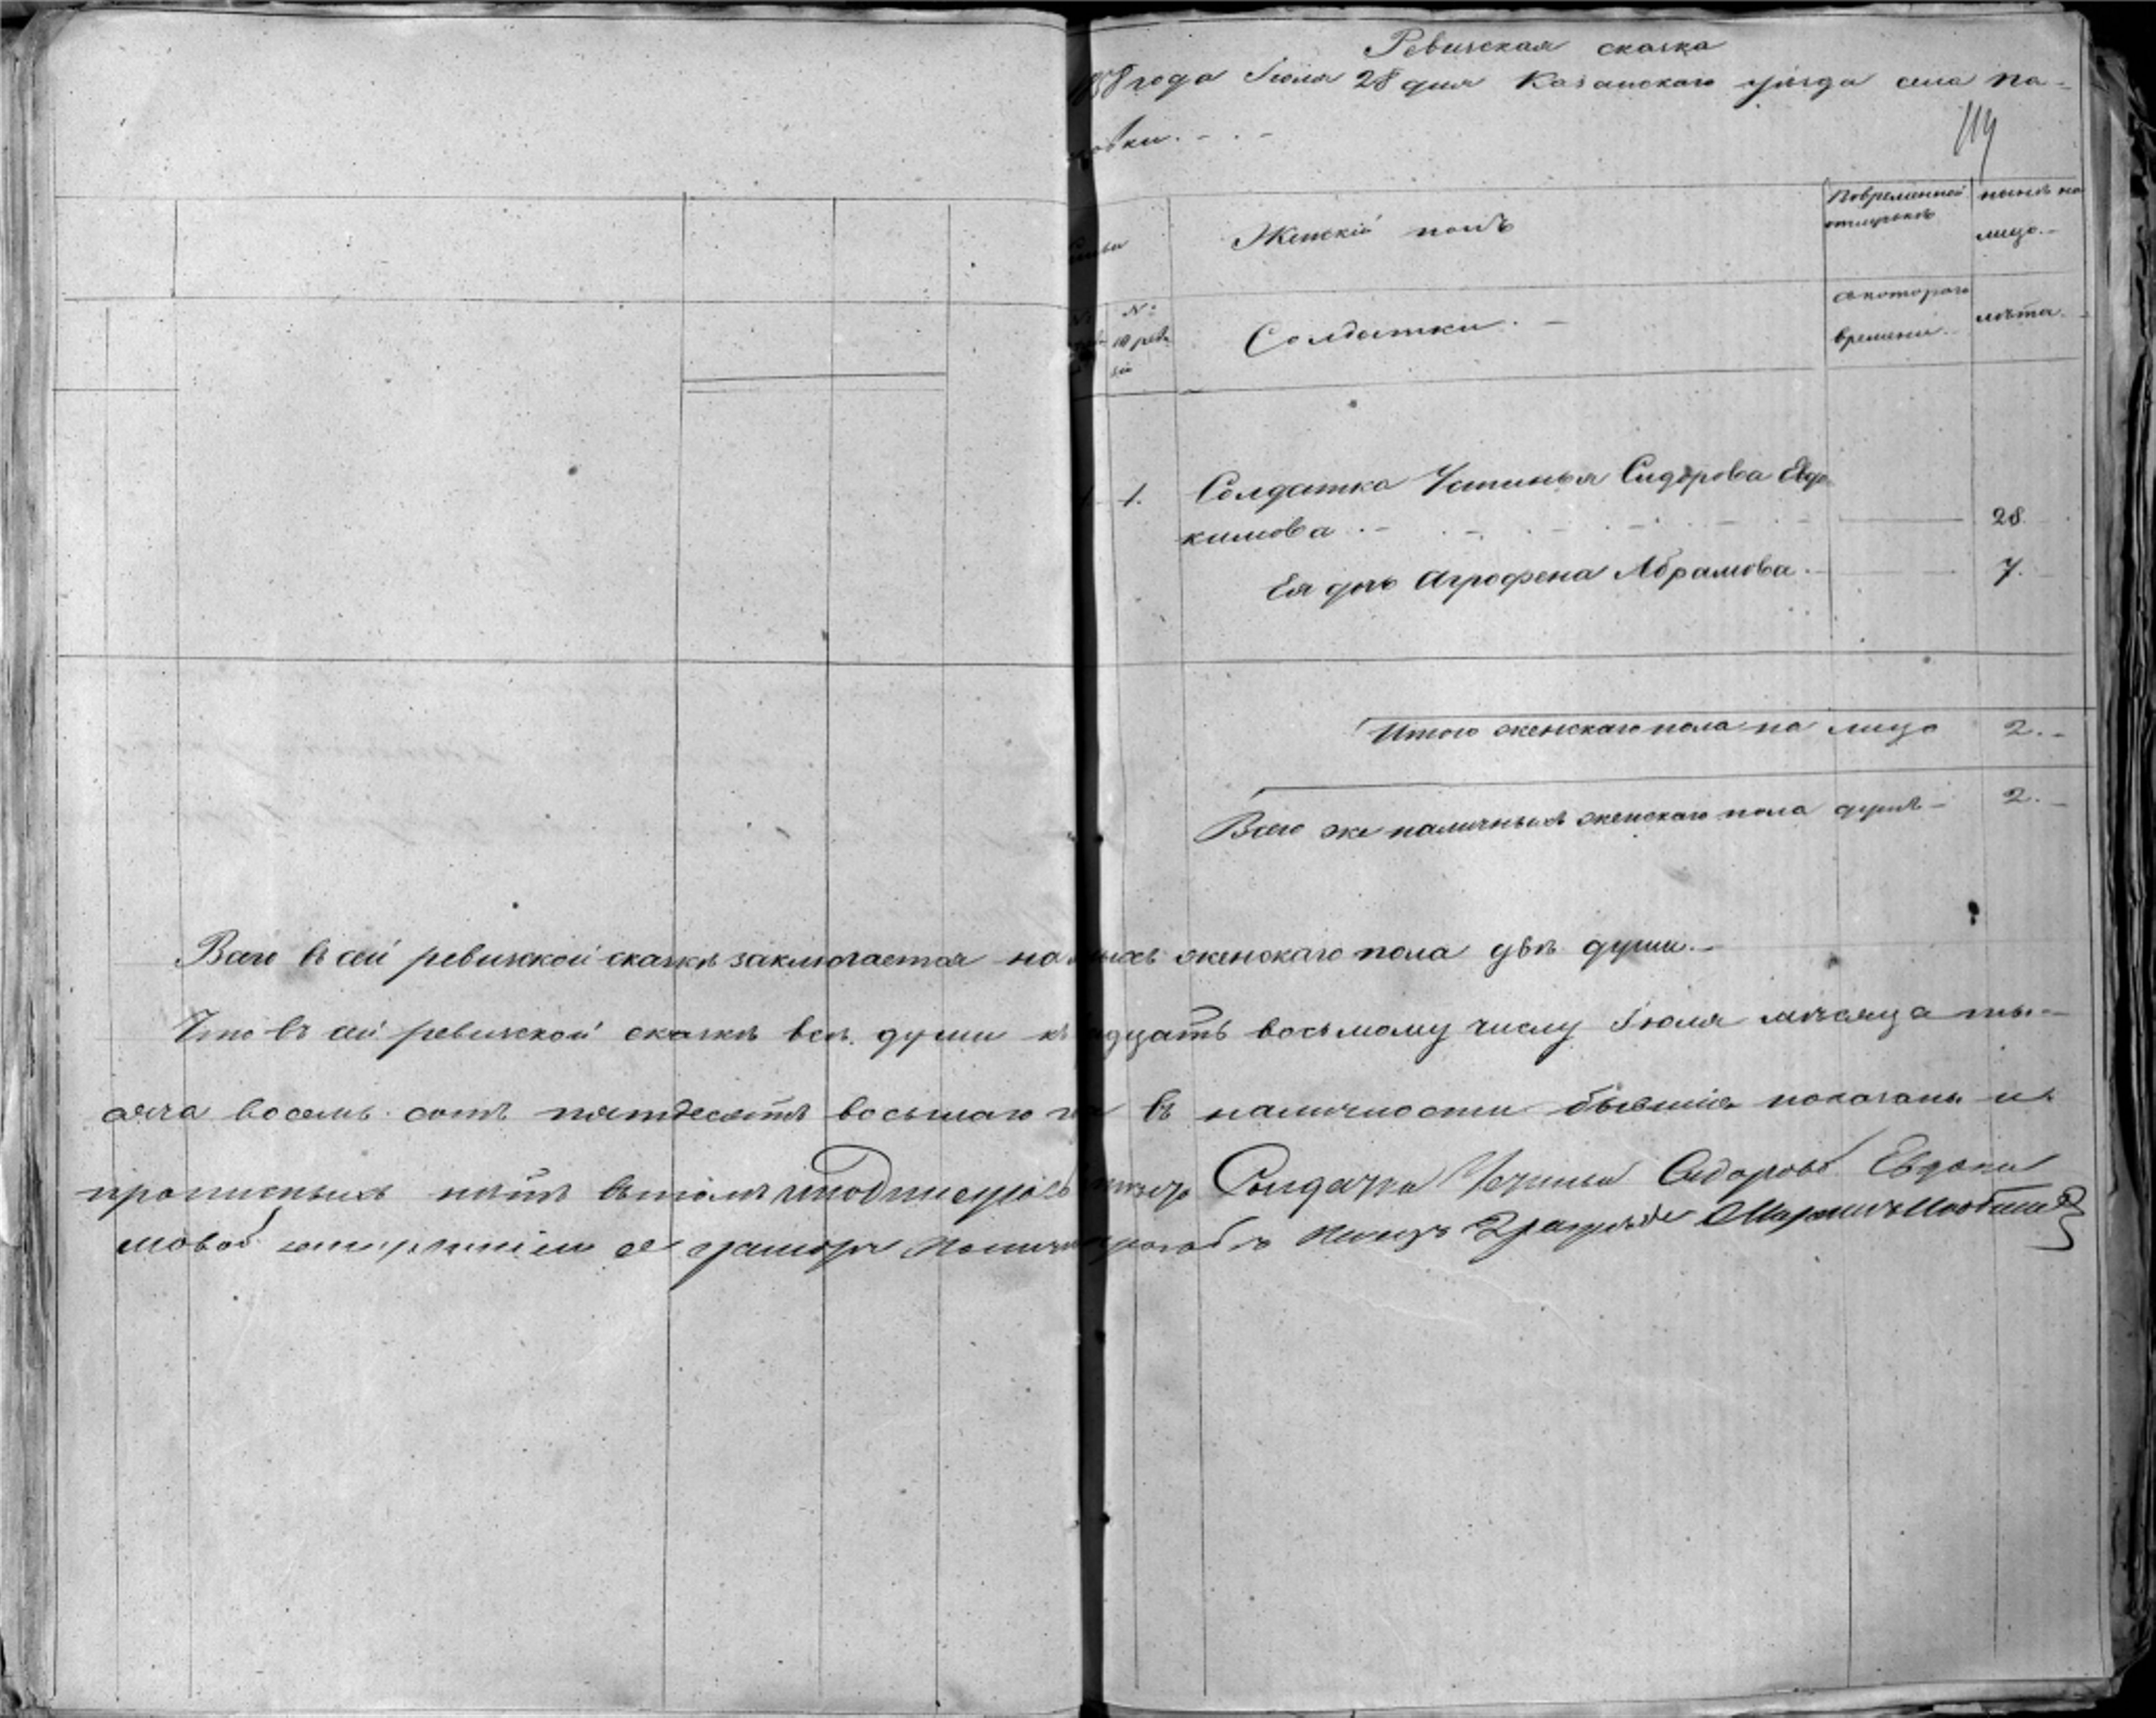 Ревижская сказка
1858 года Іюля 28 дня Казанскаго уѣзда села Па-
ловки.
119
Женскій полъ
Повременной отлучкѣ
нынѣ на лицо.
№
№ 10 ревизіи
Солдатки.
съ котораго времени
лѣта.
1. Солдатка Устинья Сидорова Евдо
кимова 28
Ея дочь Агрофена Абрамова 7.
Итого женскаго пола на лицо 2.
Всего же наличныхъ женскаго пола душъ 2.
Всего въ сей ревижской сказкѣ заключается на ныхъ женскаго пола двѣ души.
Что въ сей ревижской сказкѣ всѣ души къ дцать восьмому числу Іюля мѣсяца ты-
сяча восемь сотъ пятдесятъ восьмаго въ наличности бывшія показаны и
прописныхъ нѣтъ въ томъ Солдатка Устинья Сидорова Евдоки
мова грамоте